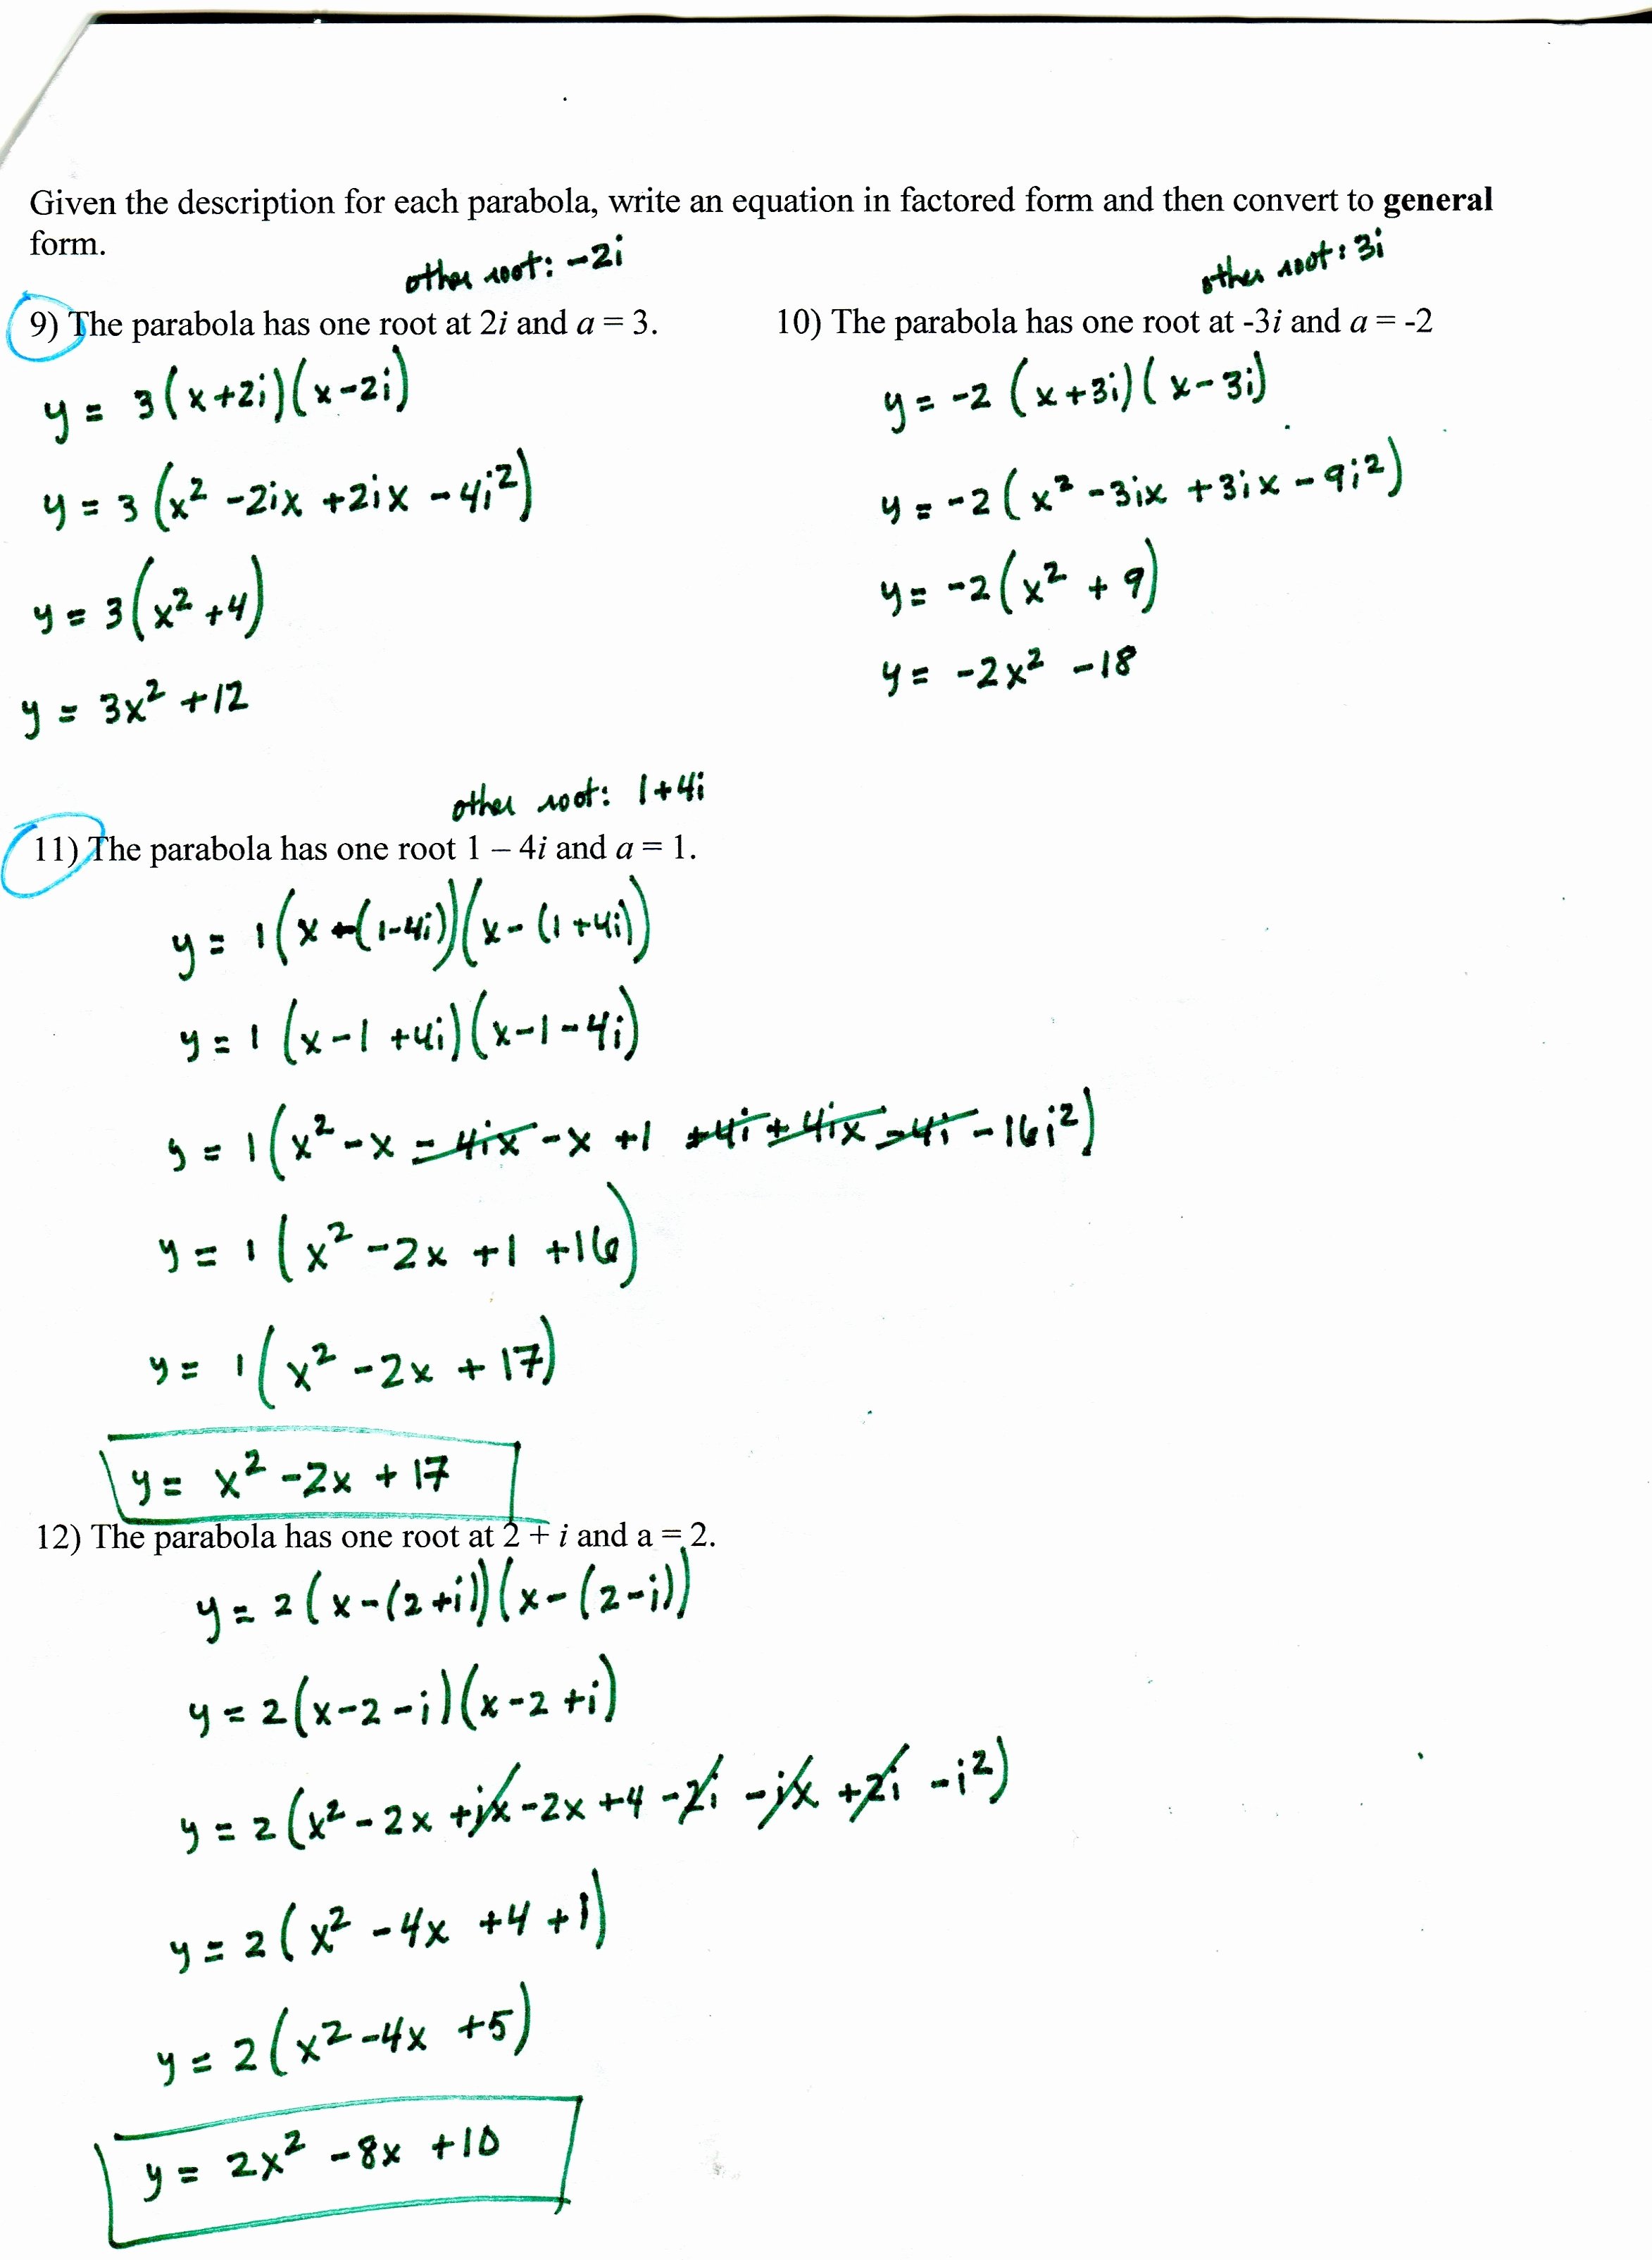 Given the description for each parabola, write an equation in factored form and then convert to general
form.
other root: -2i
9) The parabola has one root at 2i and a = 3.
y = 3(x+2i)(x-2i)
y = 3(x² -2ix +2ix -4i²)
y = 3(x² +4)
y = 3x² +12
other root: 3i
10) The parabola has one root at -3i and a = -2
y = -2 (x+3i)(x-3i)
y = -2(x² -3ix +3ix -9i²)
y = -2(x² + 9)
y = -2x² -18
other root: 1+4i
11) The parabola has one root 1 – 4i and a = 1.
y = 1(x-(1-4i))(x-(1+4i))
y = 1 (x-1+4i)(x-1-4i)
y = 1(x² -x -4ix -x +1 +4i +4ix -4i -16i²)
y = 1(x² -2x +1 +16)
y = 1(x² -2x + 17)
y = x² -2x + 17
12) The parabola has one root at 2 + i and a = 2.
y = 2(x-(2+i))(x-(2-i))
y = 2(x-2-i)(x-2+i)
y = 2(x² -2x +ix -2x +4 -2i -ix +2i -i²)
y = 2(x² -4x +4 +1)
y = 2(x² -4x +5)
y = 2x² -8x +10